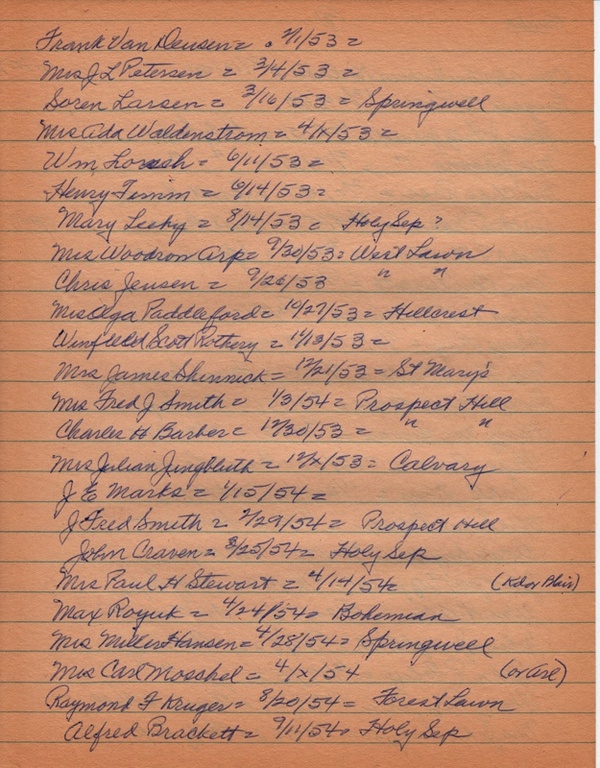 Frank Van Deusen = 2/1/53 =
Mrs J L Petersen = 3/4/53 =
Soren Larsen = 3/16/53 = Springwell
Mrs Ada Waldenstrom = 4/x/53 =
Wm = 6/11/53 =
Henry Timm = 6/14/53 =
Mary Leeky = 8/14/53 = Holy Sep ?
Mrs Woodrow Arp = 9/30/53 = West Lawn
Chris Jensen = 9/26/53 " "
Mrs Olga Paddleford = 10/27/53 = Hillcrest
Winfield Scott Rothery = 11/13/53 =
Mrs James Shinnick = 12/21/53 = St Mary's
Mrs Fred J Smith = 1/3/54 = Prospect Hill
Charles H Barber = 12/30/53 = " "
Mrs Julian Jungbluth = 12/x/53 = Calvary
J E Marks = 1/15/54 =
J Fred Smith = 2/29/54 = Prospect Hill
John Craven = 3/25/54 = Holy Sep
Mrs Paul H Stewart = 4/14/54 = (K or Blair)
Max Royuk = 4/24/54 = Bohemian
Mrs Miller Hansen = 4/28/54 = Springwell
Mrs Carl Moschel = 4/x/54 (or Arl)
Raymond F Kruger = 8/20/54 = Forest Lawn
Alfred Brackett = 9/11/54 = Holy Sep